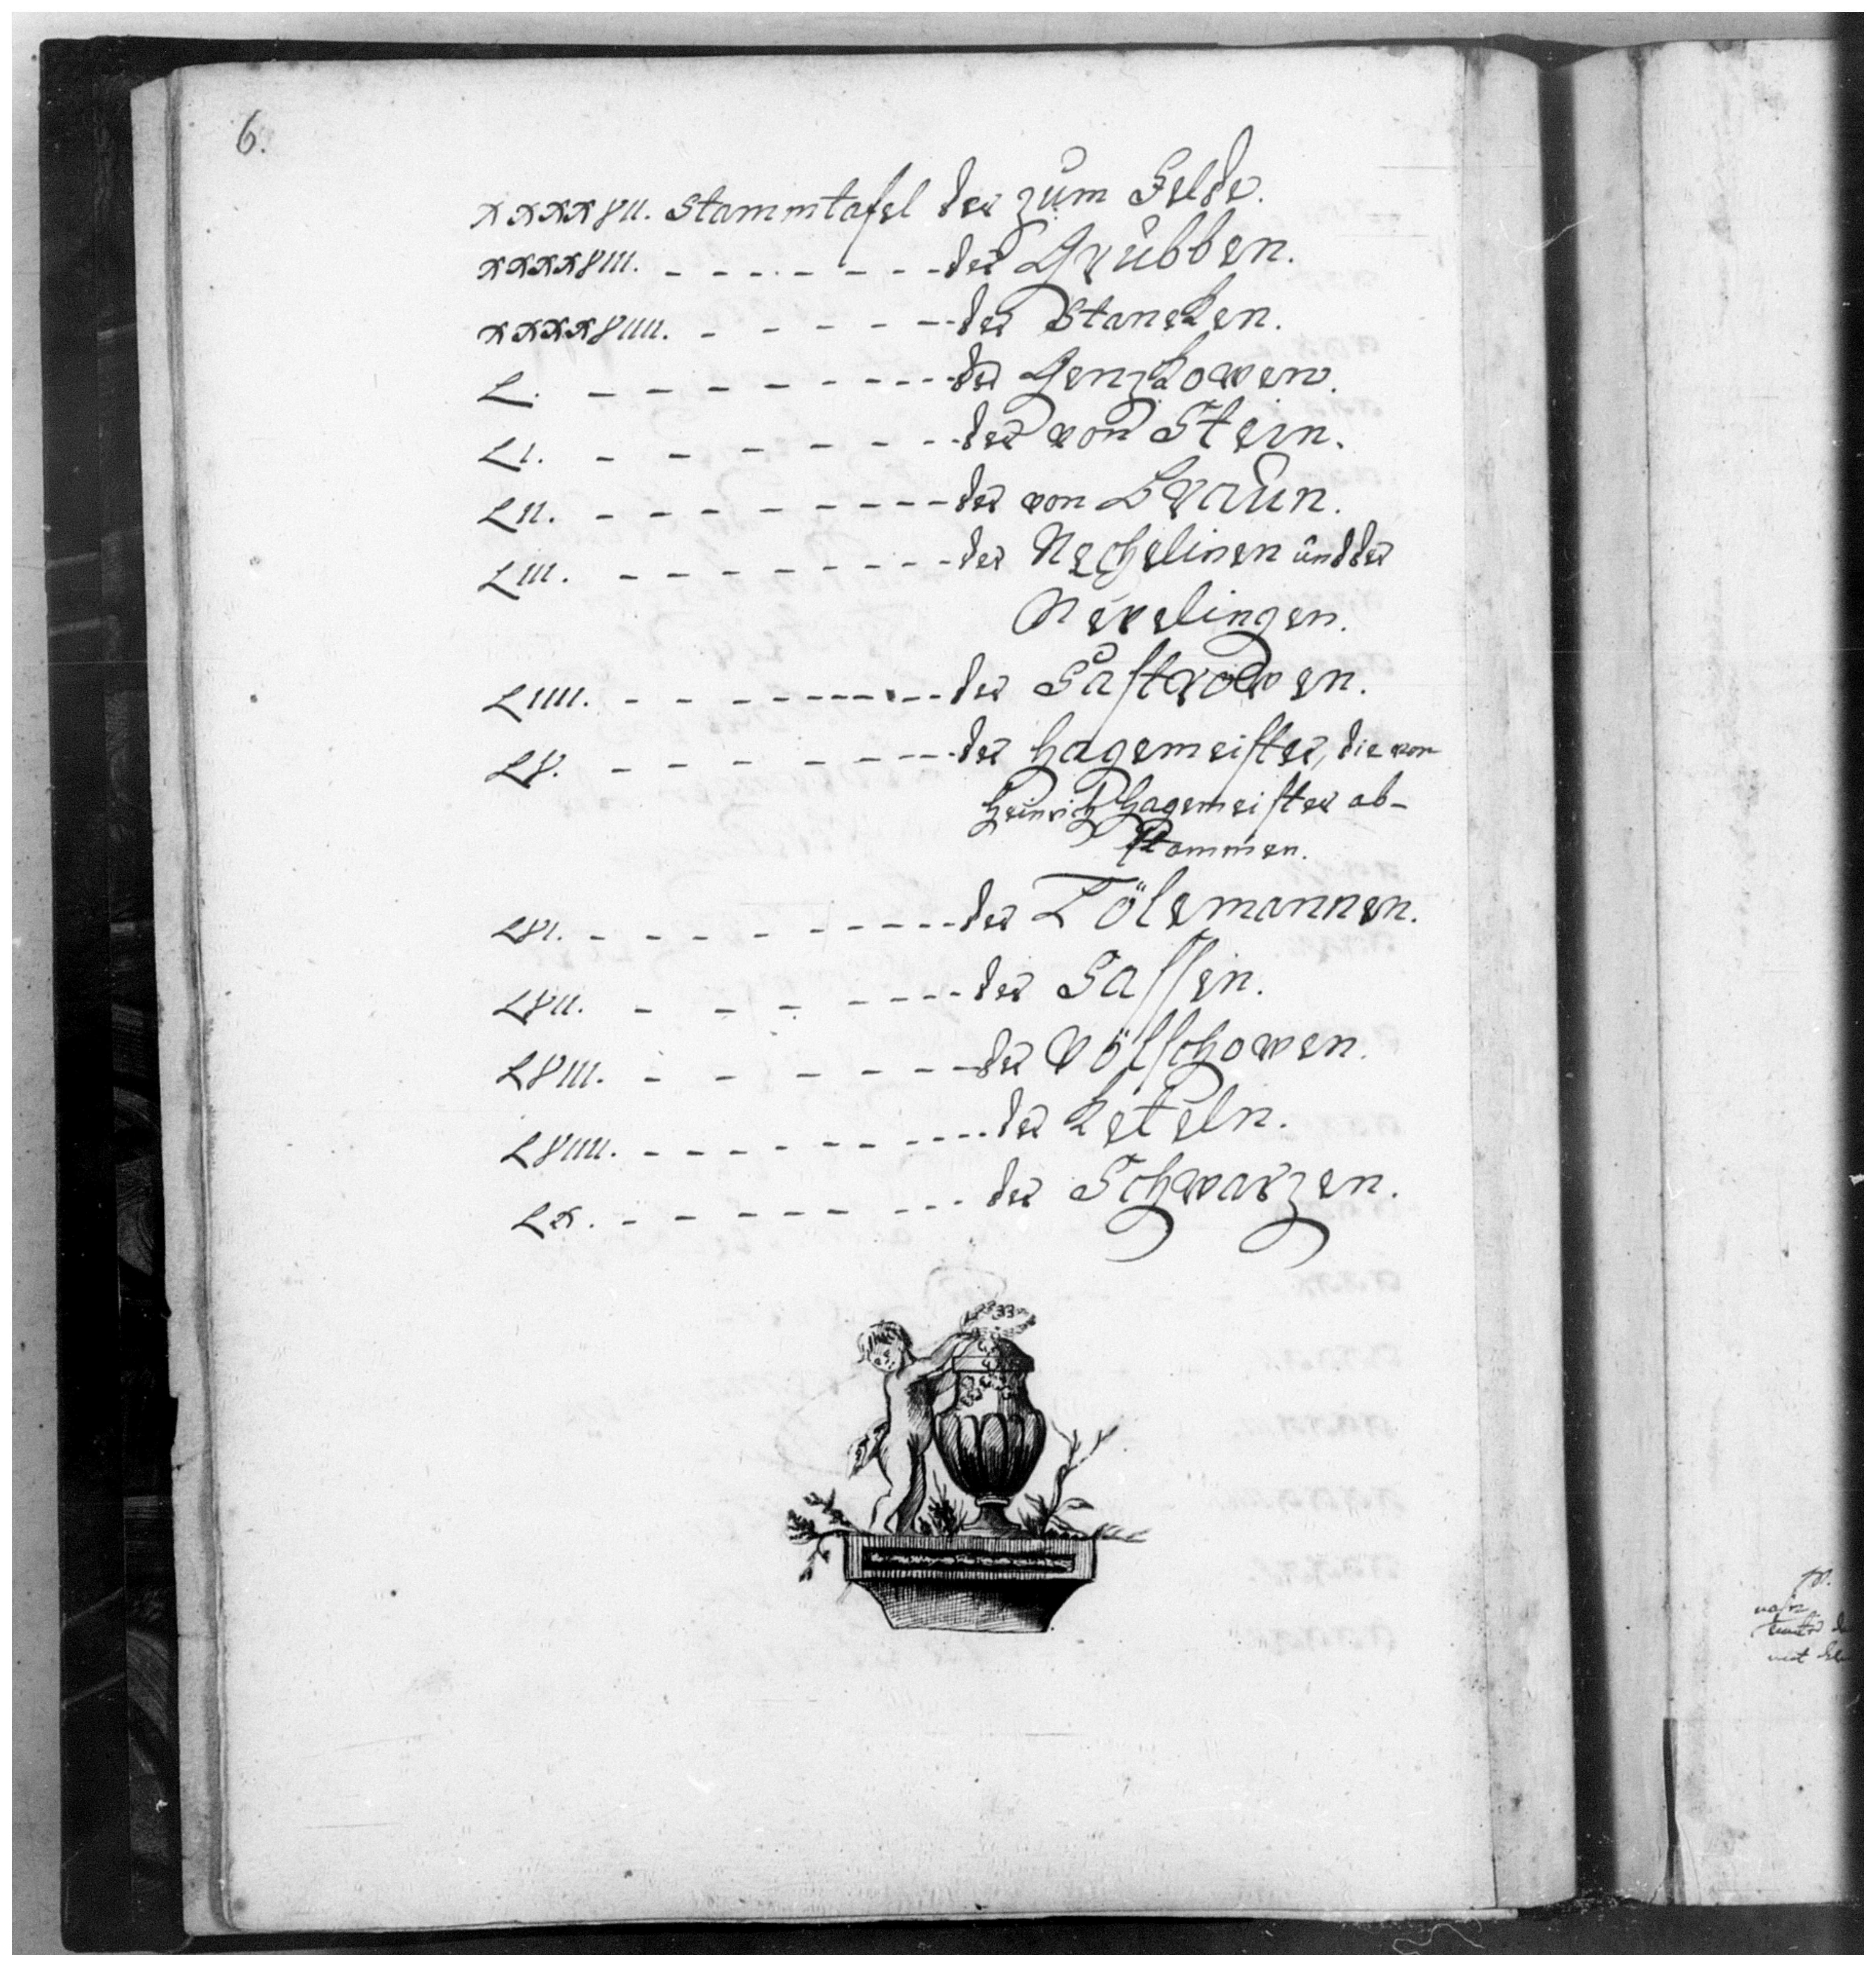 6.
xxxxvii. Stammtafel der zum Felde.
xxxxviii. - - - - - - - der Grubben.
xxxxviiii. - - - - - - der Stancken.
L. - - - - - - - - - der Genzkowen.
Li. - - - - - - - der von Stein.
Lii. - - - - - - - - - der von Braun.
Liii. - - - - - - - - - der Nechelinen und der
Nevelingen.
Liiii. - - - - - - - - - - der Sastrowen.
Lv. - - - - - - - - der Hagemeister, die von
Heinrich Hagemeister ab-
stammen.
Lvi. - - - - - - - - - - der Tölemannen.
Lvii. - - - - - - - der Sassen.
Lviii. - - - - - - - der Völschowen.
Lviiii. - - - - - - - - - - - der Keteln.
Lx. - - - - - - - - - der Schwarzen.